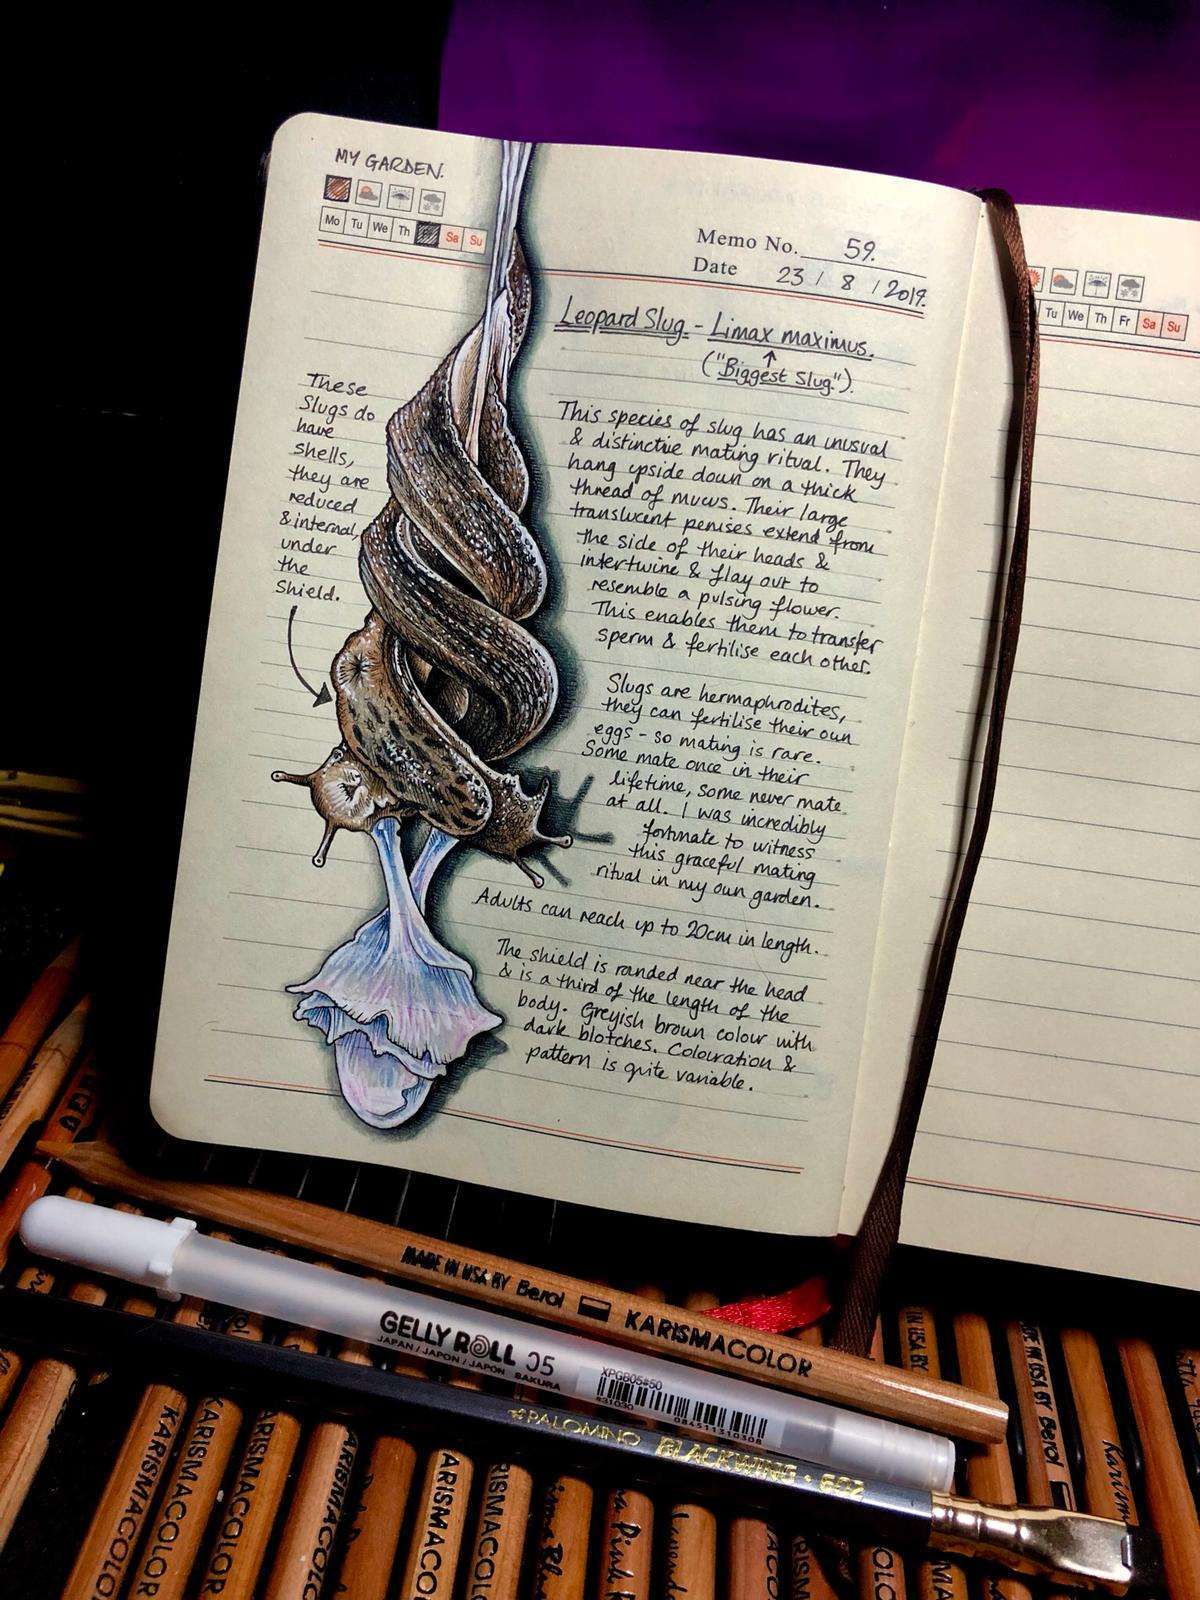 MY GARDEN.
Mo Tu We Th Sa Su
Memo No. 59.
Date 23 / 8 / 2019.
Leopard Slug - Limax maximus.
("Biggest Slug").
These
Slugs do
have
shells,
they are
reduced
& internal,
under
the
Shield.
This species of slug has an unusual
& distinctive mating ritual. They
hang upside down on a thick
thread of mucus. Their large
translucent penises extend from
the side of their heads &
intertwine & flay out to
resemble a pulsing flower.
This enables them to transfer
sperm & fertilise each other.
Slugs are hermaphrodites,
they can fertilise their own
eggs - so mating is rare.
Some mate once in their
lifetime, some never mate
at all. I was incredibly
fortunate to witness
this graceful mating
ritual in my own garden.
Adults can reach up to 20cm in length.
The shield is randed near the head
& is a third of the length of the
body. Greyish brown colour with
dark blotches. Colouration &
pattern is quite variable.
Tu We Th Fr Sa Su
MADE IN USA BY Berol KARISMACOLOR
GELLY ROLL 05
JAPAN / JAPON / JAPÓN SAKURA
XPGB05#50
831030
084511310308
PALOMINO BLACKWING 602
KARISMACOLOR
KARISMACOLOR
KARISMACOLOR
KARISMACOLO
ARISMACO
ARISMACOL
IN USA BY
IN USA BY Berol
Karism